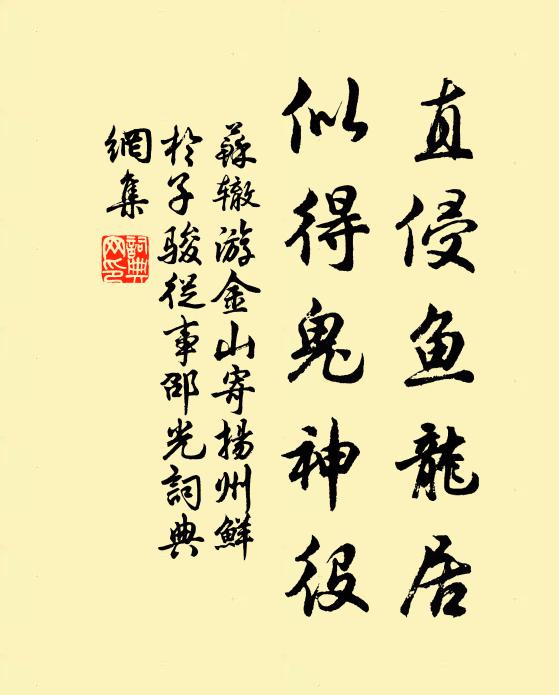 直侵鱼龍居
似得鬼神役
蘇辙游金山寄揚州鮮
於子駿従事邵光詞典
網集
詞典
网印